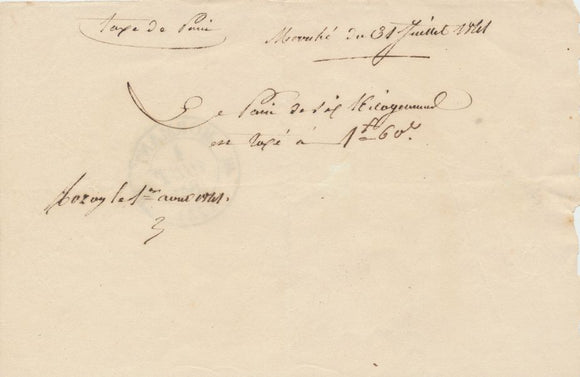 Taxe de Pain
Marché du 31 Juillet 1841
Le Pain de six Kilogrammes
est taxé à 1f 60c
Rozoy le 1er aout 1841.